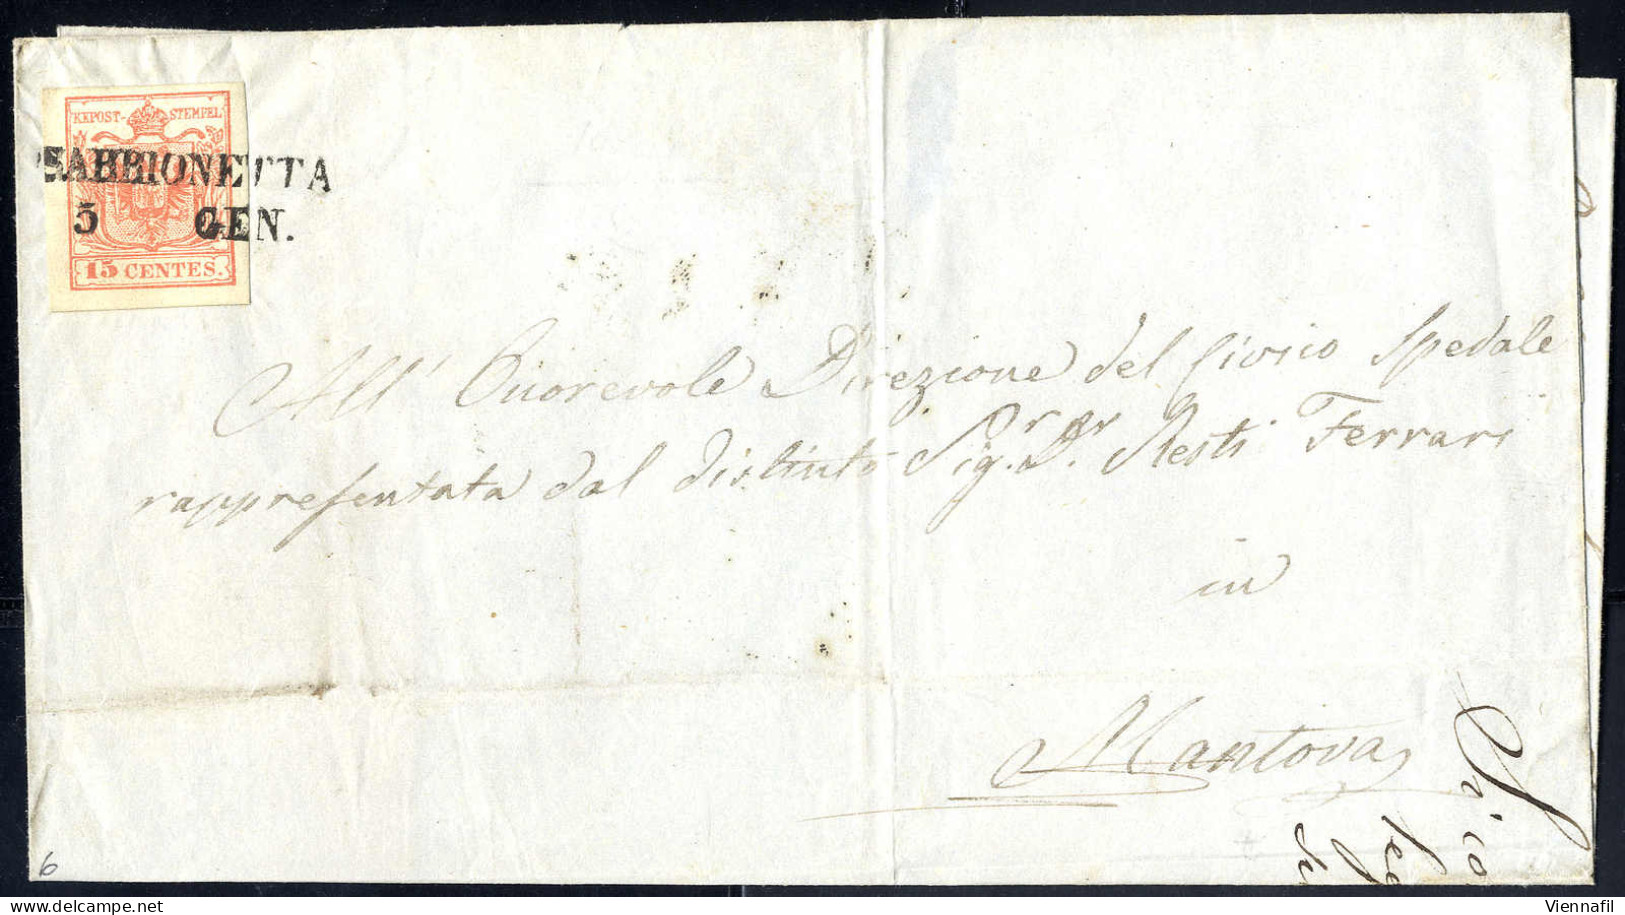 KKPOST-STEMPEL
SABBIONETTA
5 GEN.
15 CENTES.
All' Onorevole Direzione del Civico Spedale
rappresentata dal distinto Sig.r D.r Resti Ferrari
in
Mantova
6
Viennafil